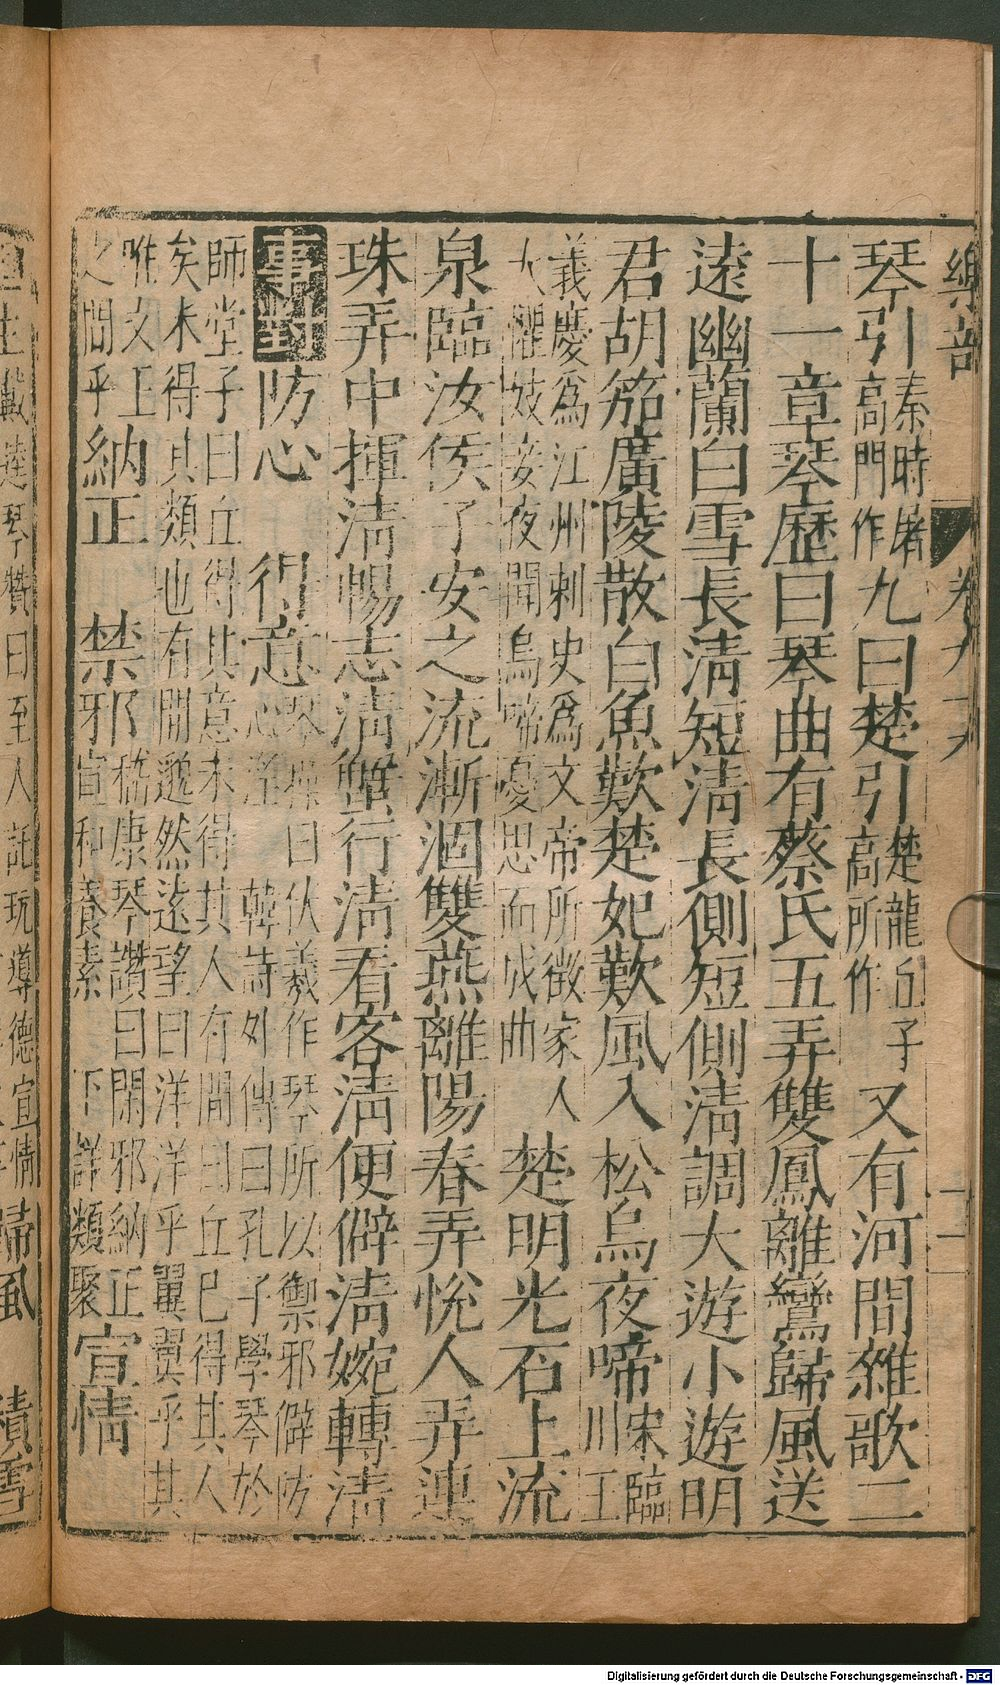 樂部 卷十六 十一
琴引秦時屠高門作九曰楚引楚龍丘子高所作又有河間雜歌二
十一章琴歷曰琴曲有蔡氏五弄雙鳳離鸞歸風送
逺幽蘭白雪長清短清長側短側清調大遊小遊明
君胡笳廣陵散白魚歎楚妃歎風入松烏夜啼宋臨川王
義慶爲江州刺史爲文帝所徵家人大懼妓妾夜聞烏啼憂思而成曲楚明光石上流
泉臨汝侯子安之流漸洄雙燕離陽春弄悅人弄連
珠弄中揮清暢志清蟹行清看客清便僻清婉轉清
事對 防心 得意琴操曰伏羲作琴所以禦邪僻防心淫 韓詩外傳曰孔子學琴於
師堂子曰丘得其意未得其人有間曰丘已得其人矣未得其類也有間邈然逺望曰洋洋乎翼翼乎其
唯文王之間乎納正 禁邪嵇康琴讚曰閑邪納正宣和養素 下詳類聚宣情
戴逵琴贊曰至人託玩導德宣情 歸風 積雪
Digitalisierung gefördert durch die Deutsche Forschungsgemeinschaft - DFG